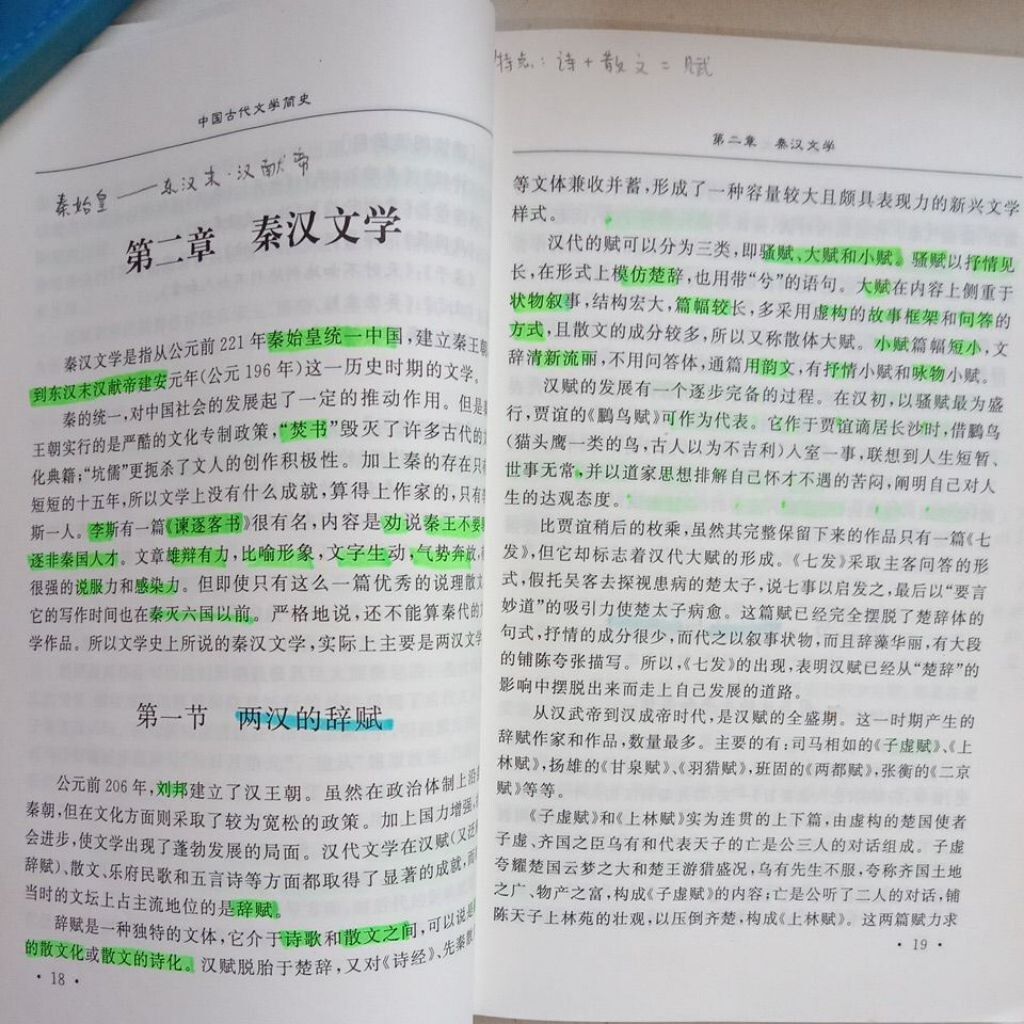 中国古代文学简史
秦始皇——东汉末·汉献帝
第二章　秦汉文学
秦汉文学是指从公元前 221 年秦始皇统一中国，建立秦王朝
到东汉末汉献帝建安元年(公元 196 年)这一历史时期的文学。
秦的统一，对中国社会的发展起了一定的推动作用。但是
王朝实行的是严酷的文化专制政策，“焚书”毁灭了许多古代的
化典籍；“坑儒”更扼杀了文人的创作积极性。加上秦的存在只
短短的十五年，所以文学上没有什么成就，算得上作家的，只有
斯一人。李斯有一篇《谏逐客书》很有名，内容是劝说秦王不要
逐非秦国人才。文章雄辩有力，比喻形象，文字生动，气势奔放，
很强的说服力和感染力。但即使只有这么一篇优秀的说理散文
它的写作时间也在秦灭六国以前。严格地说，还不能算秦代的
学作品。所以文学史上所说的秦汉文学，实际上主要是两汉文学
第一节　两汉的辞赋
公元前 206 年，刘邦建立了汉王朝。虽然在政治体制上沿
秦朝，但在文化方面则采取了较为宽松的政策。加上国力增强，
会进步，使文学出现了蓬勃发展的局面。汉代文学在汉赋(又
辞赋)、散文、乐府民歌和五言诗等方面都取得了显著的成就，而
当时的文坛上占主流地位的是辞赋。
辞赋是一种独特的文体，它介于诗歌和散文之间，可以说是
的散文化或散文的诗化。汉赋脱胎于楚辞，又对《诗经》、先秦散
· 18 ·
特点：诗+散文=赋
第二章　秦汉文学
等文体兼收并蓄，形成了一种容量较大且颇具表现力的新兴文学
样式。
汉代的赋可以分为三类，即骚赋、大赋和小赋。骚赋以抒情见
长，在形式上模仿楚辞，也用带“兮”的语句。大赋在内容上侧重于
状物叙事，结构宏大，篇幅较长，多采用虚构的故事框架和问答的
方式，且散文的成分较多，所以又称散体大赋。小赋篇幅短小，文
辞清新流丽，不用问答体，通篇用韵文，有抒情小赋和咏物小赋。
汉赋的发展有一个逐步完备的过程。在汉初，以骚赋最为盛
行，贾谊的《鵩鸟赋》可作为代表。它作于贾谊谪居长沙时，借鵩鸟
(猫头鹰一类的鸟，古人以为不吉利)入室一事，联想到人生短暂、
世事无常，并以道家思想排解自己怀才不遇的苦闷，阐明自己对人
生的达观态度。
比贾谊稍后的枚乘，虽然其完整保留下来的作品只有一篇《七
发》，但它却标志着汉代大赋的形成。《七发》采取主客问答的形
式，假托吴客去探视患病的楚太子，说七事以启发之，最后以“要言
妙道”的吸引力使楚太子病愈。这篇赋已经完全摆脱了楚辞体的
句式，抒情的成分很少，而代之以叙事状物，而且辞藻华丽，有大段
的铺陈夸张描写。所以，《七发》的出现，表明汉赋已经从“楚辞”的
影响中摆脱出来而走上自己发展的道路。
从汉武帝到汉成帝时代，是汉赋的全盛期。这一时期产生的
辞赋作家和作品，数量最多。主要的有：司马相如的《子虚赋》、《上
林赋》，扬雄的《甘泉赋》、《羽猎赋》，班固的《两都赋》，张衡的《二京
赋》等等。
《子虚赋》和《上林赋》实为连贯的上下篇，由虚构的楚国使者
子虚、齐国之臣乌有和代表天子的亡是公三人的对话组成。子虚
夸耀楚国云梦之大和楚王游猎盛况，乌有先生不服，夸称齐国土地
之广、物产之富，构成《子虚赋》的内容；亡是公听了二人的对话，铺
陈天子上林苑的壮观，以压倒齐楚，构成《上林赋》。这两篇赋力求
· 19 ·